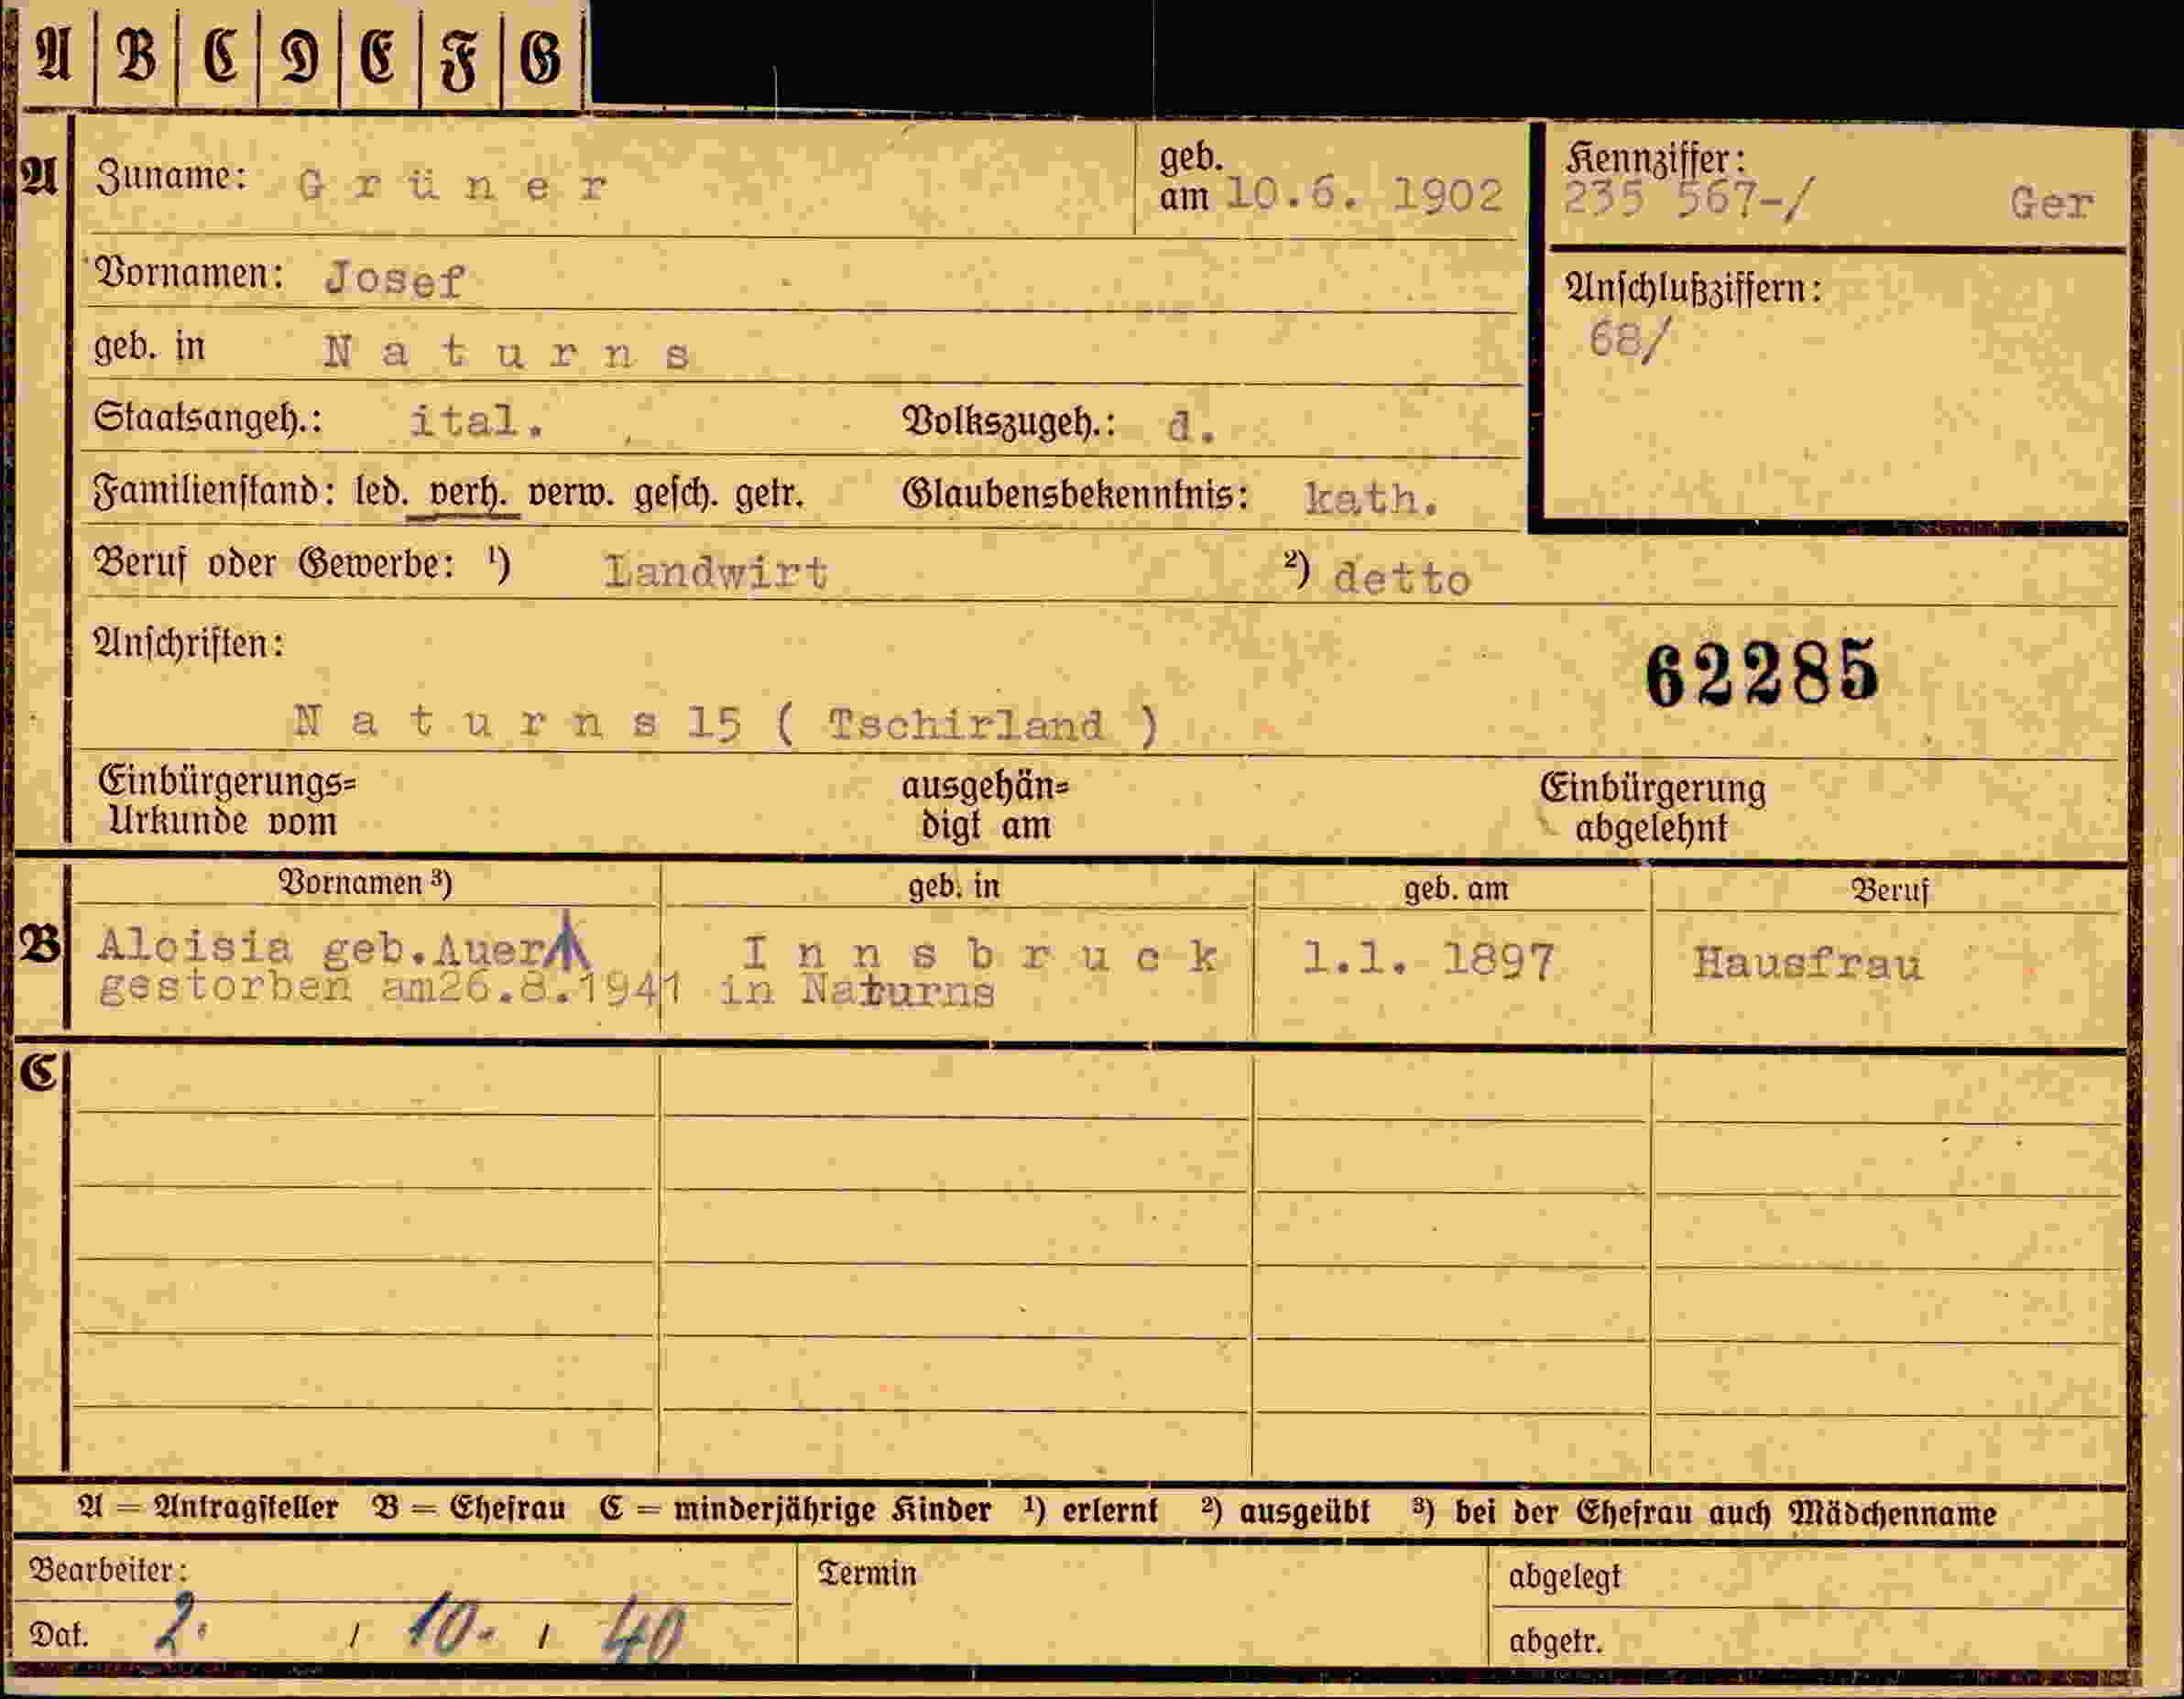 A B C D E F G
A Zuname: Grüner geb. am 10.6. 1902 Kennziffer: 235 567-/ Ger
Vornamen: Josef Anschlußziffern: 68/
geb. in Naturns
Staatsangeh.: ital. Volkszugeh.: d.
Familienstand: led. verh. verw. gesch. getr. Glaubensbekenntnis: kath.
Beruf oder Gewerbe: ¹) Landwirt ²) detto
Anschriften: 62285
Naturns 15 ( Tschirland )
Einbürgerungs= ausgehän= Einbürgerung
Urkunde vom digt am abgelehnt
Vornamen ³) geb. in geb. am Beruf
B Aloisia geb.Auer Innsbruck 1.1. 1897 Hausfrau
gestorben am26.8.1941 in Naturns
C
A = Antragsteller B = Ehefrau C = minderjährige Kinder ¹) erlernt ²) ausgeübt ³) bei der Ehefrau auch Mädchenname
Bearbeiter: Termin abgelegt
Dat. 2. / 10. / 40 abgetr.